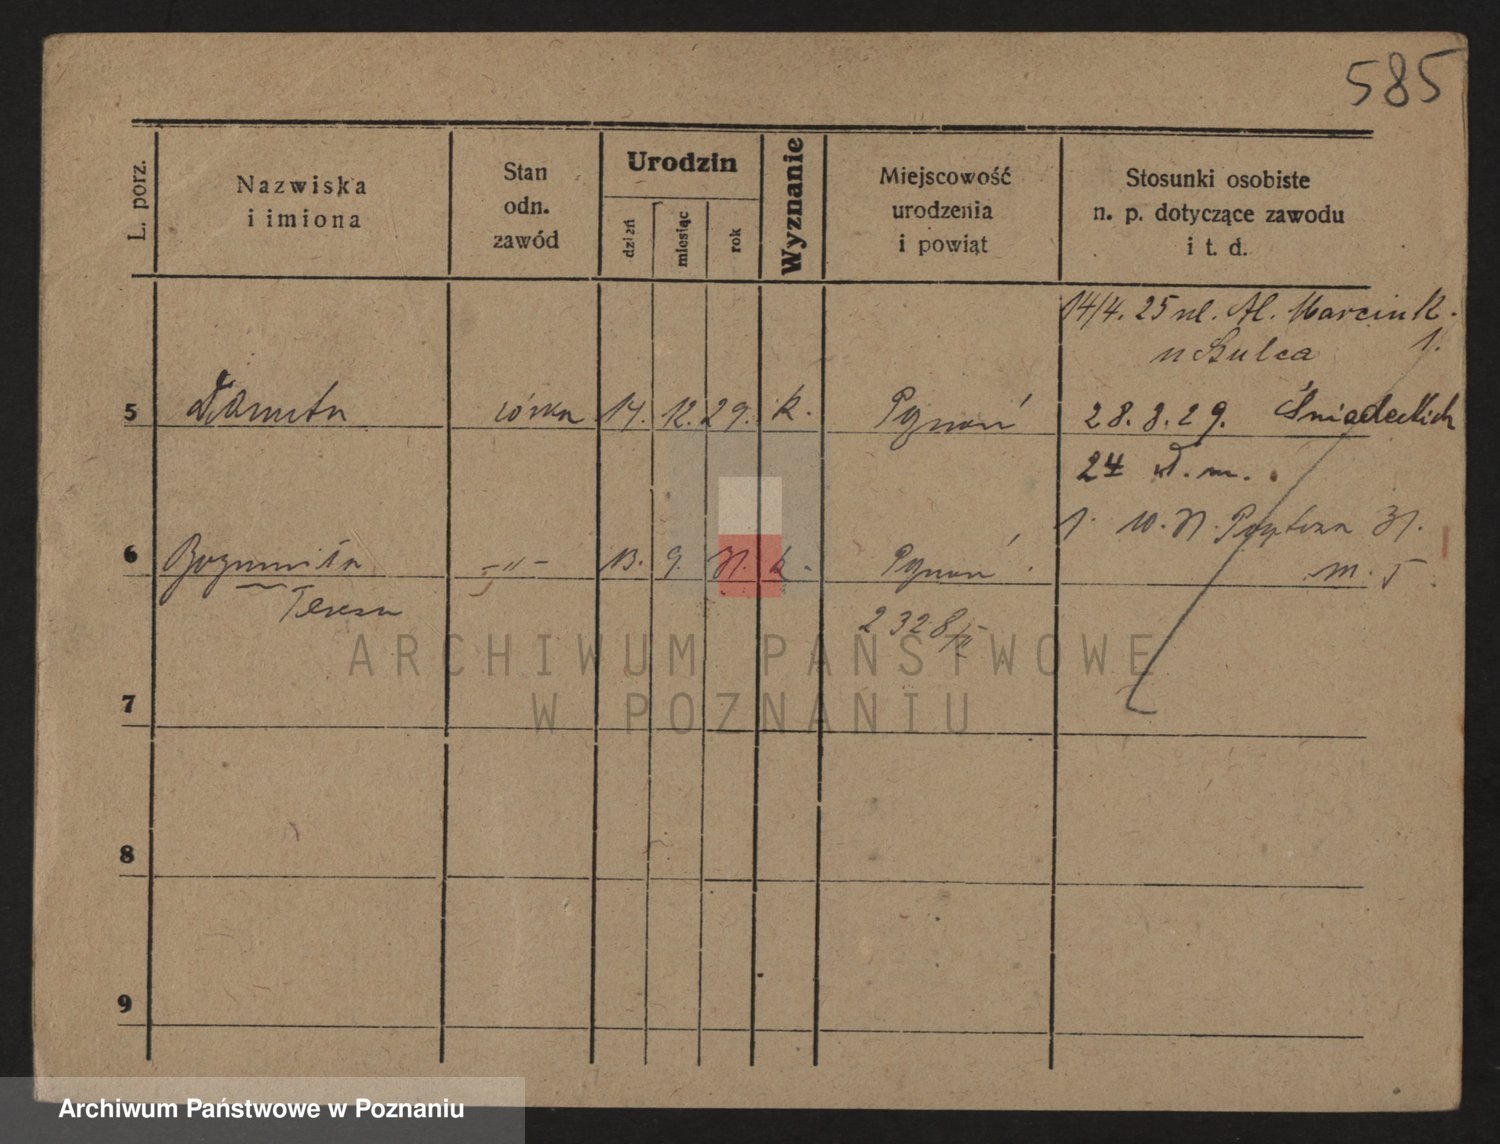 585
L. porz.
Nazwiska
i imiona
Stan
odn.
zawód
Urodzin
dzień
miesiąc
rok
Wyznanie
Miejscowość
urodzenia
i powiąt
Stosunki osobiste
n. p. dotyczące zawodu
i t. d.
14/4. 25 ul. Al. Marcink.
u Szulca 1.
5 Danuta córka 14. 12. 29. k. Poznań 28. 8. 29. Śniadeckich
24 m.
6 Bogumiła -"- 13. 9. 31. k. Poznań
1. 10. 31.
m. 5
Teresa
2328/II
7
8
9
ARCHIWUM PAŃSTWOWE
W POZNANIU
Archiwum Państwowe w Poznaniu